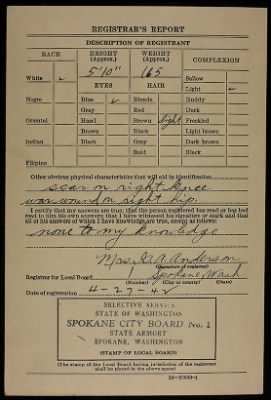 REGISTRAR'S REPORT
DESCRIPTION OF REGISTRANT
RACE HEIGHT (Approx.) WEIGHT (Approx.) COMPLEXION
5'10" 165
White ✓ Sallow
EYES HAIR Light ✓
Negro Blue ✓ Blonde Ruddy
Gray Red Dark
Oriental Hazel Brown light Freckled
Brown Black Light brown
Indian Black Gray Dark brown
Bald Black
Filipino
Other obvious physical characteristics that will aid in identification
scar on right knee
war wound on right hip.
I certify that my answers are true; that the person registered has read or has had
read to him his own answers; that I have witnessed his signature or mark and that
all of his answers of which I have knowledge are true, except as follows:
none to my knowledge
Mrs. A. Anderson
(Signature of registrar)
Registrar for Local Board 1 Spokane Wash
(Number) (City or county) (State)
Date of registration 4-27-42
SELECTIVE SERVICE
STATE OF WASHINGTON
SPOKANE CITY BOARD No. 1
STATE ARMORY
SPOKANE, WASHINGTON
(STAMP OF LOCAL BOARD)
(The stamp of the Local Board having jurisdiction of the registrant
shall be placed in the above space)